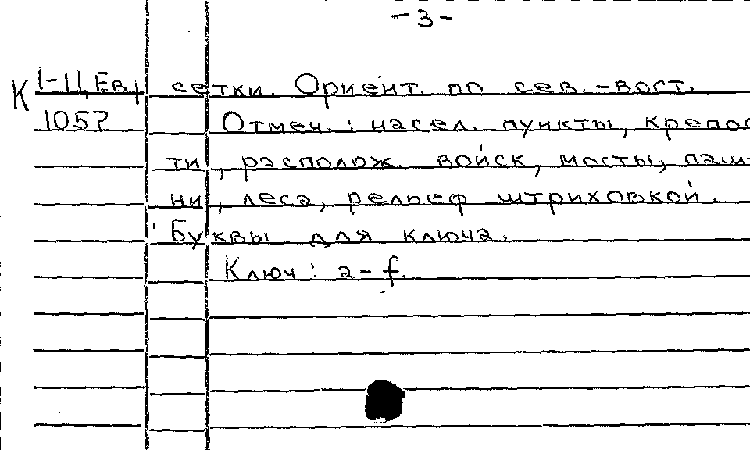 -3-
К 1-11, Ев, сетки. Ориент. по сев.-вост.
1057 Отмеч.: насел. пункты, крепос
ти, располож. войск, мосты, паш
ни, леса, рельеф штриховкой.
Буквы для ключа.
Ключ: a-f.